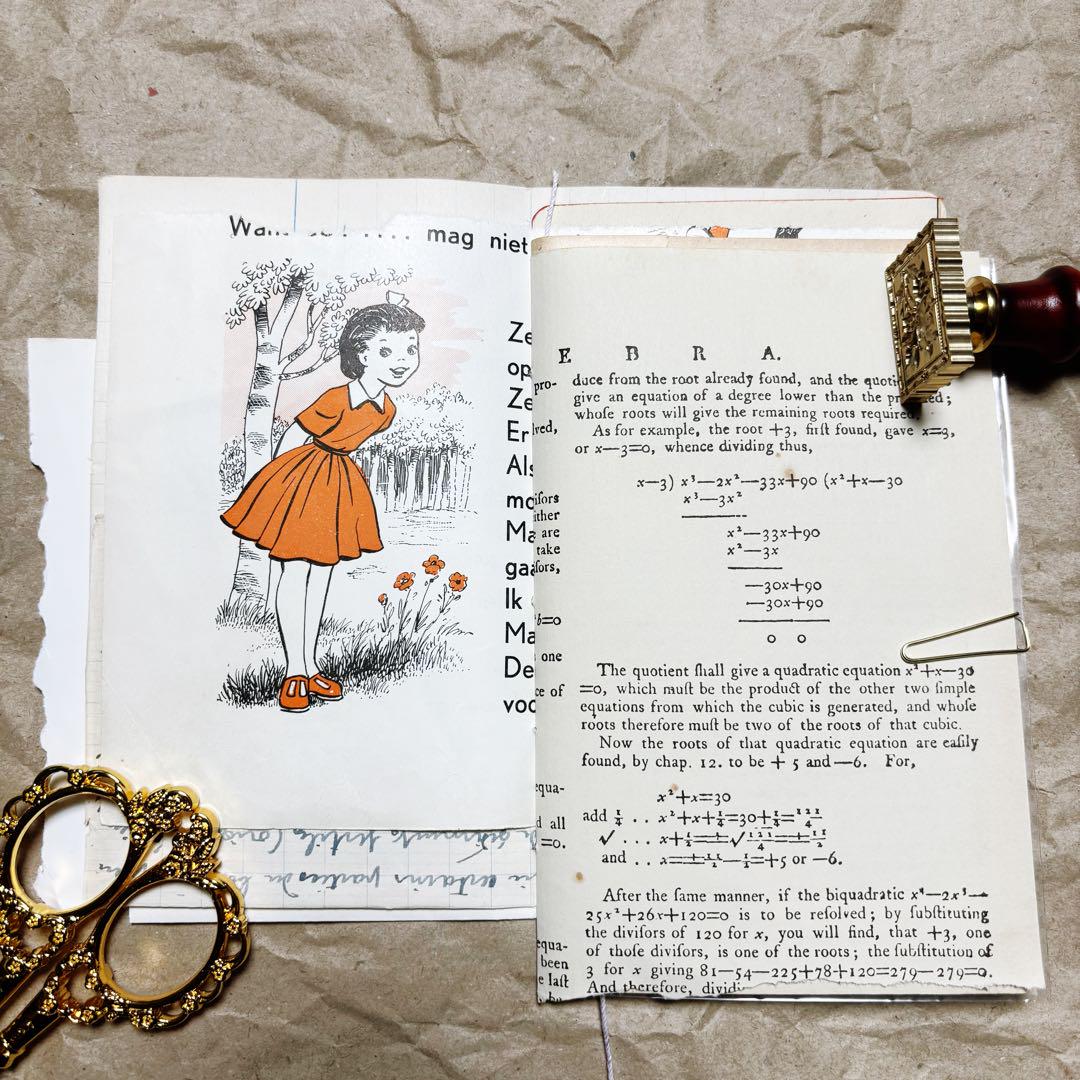 mag niet
Ze
op
Ze
Er
Als
Ma
Ik
Ma
De
certains parties du
E B R A.
pro-
lved,
iſors
ither
are
take
ſors,
b=0
one
ce of
equa-
d all
=0.
equa-
been
e laſt
duce from the root already found, and the
give an equation of a degree lower than the
whoſe roots will give the remaining roots required.
As for example, the root +3, firſt found, gave x=3,
or x—3=0, whence dividing thus,
x—3) x³—2x²—33x+90 (x²+x—30
x³—3x²
x²—33x+90
x²—3x
—30x+90
—30x+90
0 0
The quotient ſhall give a quadratic equation x²+x—30
=0, which muſt be the product of the other two ſimple
equations from which the cubic is generated, and whoſe
roots therefore muſt be two of the roots of that cubic.
Now the roots of that quadratic equation are eaſily
found, by chap. 12. to be + 5 and —6. For,
x²+x=30
add ¼ . . x²+x+¼=30+¼=121/4
√ . . . x+½=±√121/4=±11/2
and . . x=±11/2—½=+5 or —6.
After the ſame manner, if the biquadratic x⁴—2x³—
25x²+26x+120=0 is to be reſolved; by ſubſtituting
the diviſors of 120 for x, you will find, that +3, one
of thoſe diviſors, is one of the roots; the ſubſtitution of
3 for x giving 81—54—225+78+120=279—279=0.
And therefore,